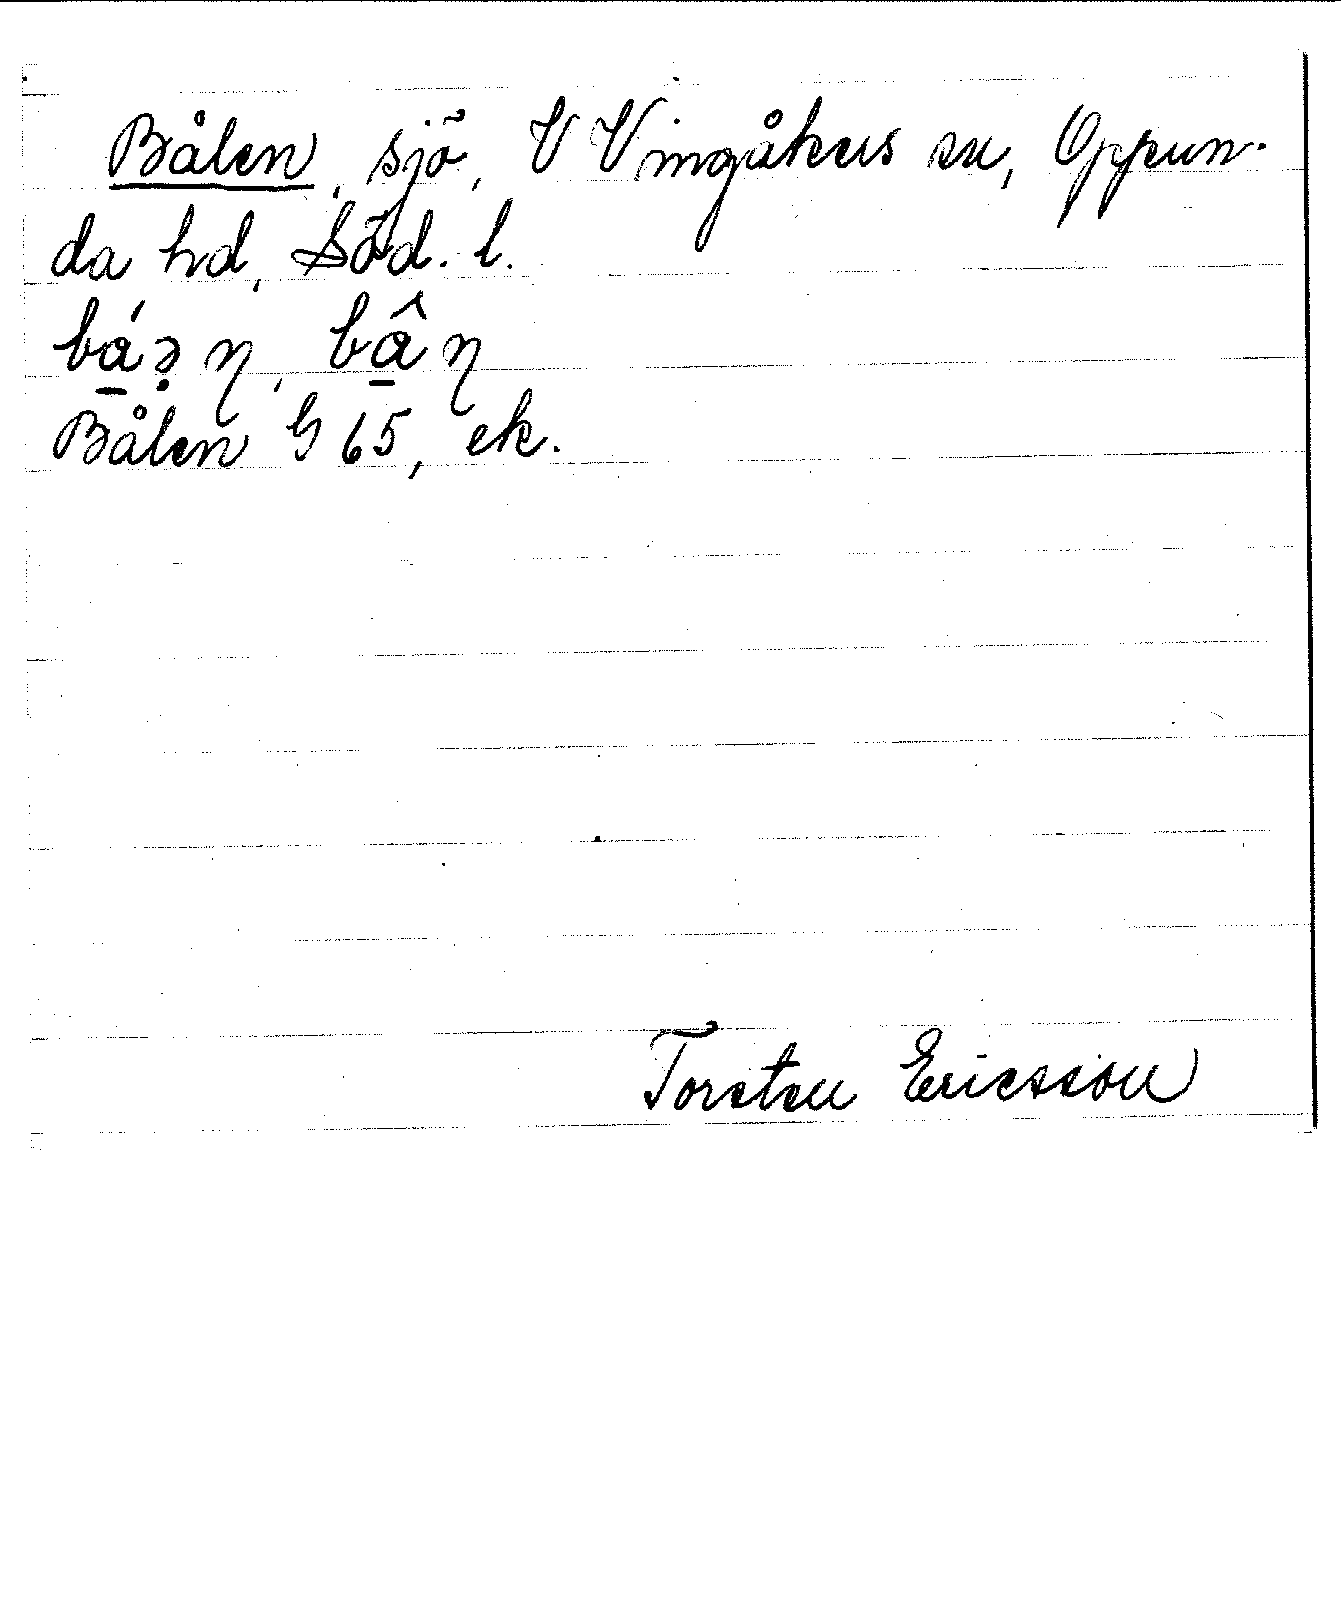 Bålen, sjö, V Vingåkers sn, Oppun-
da hd, Söd. l.
bá̱ə̣ η, bâ̱ η
Bålen G 65, ek.
Torsten Ericsson